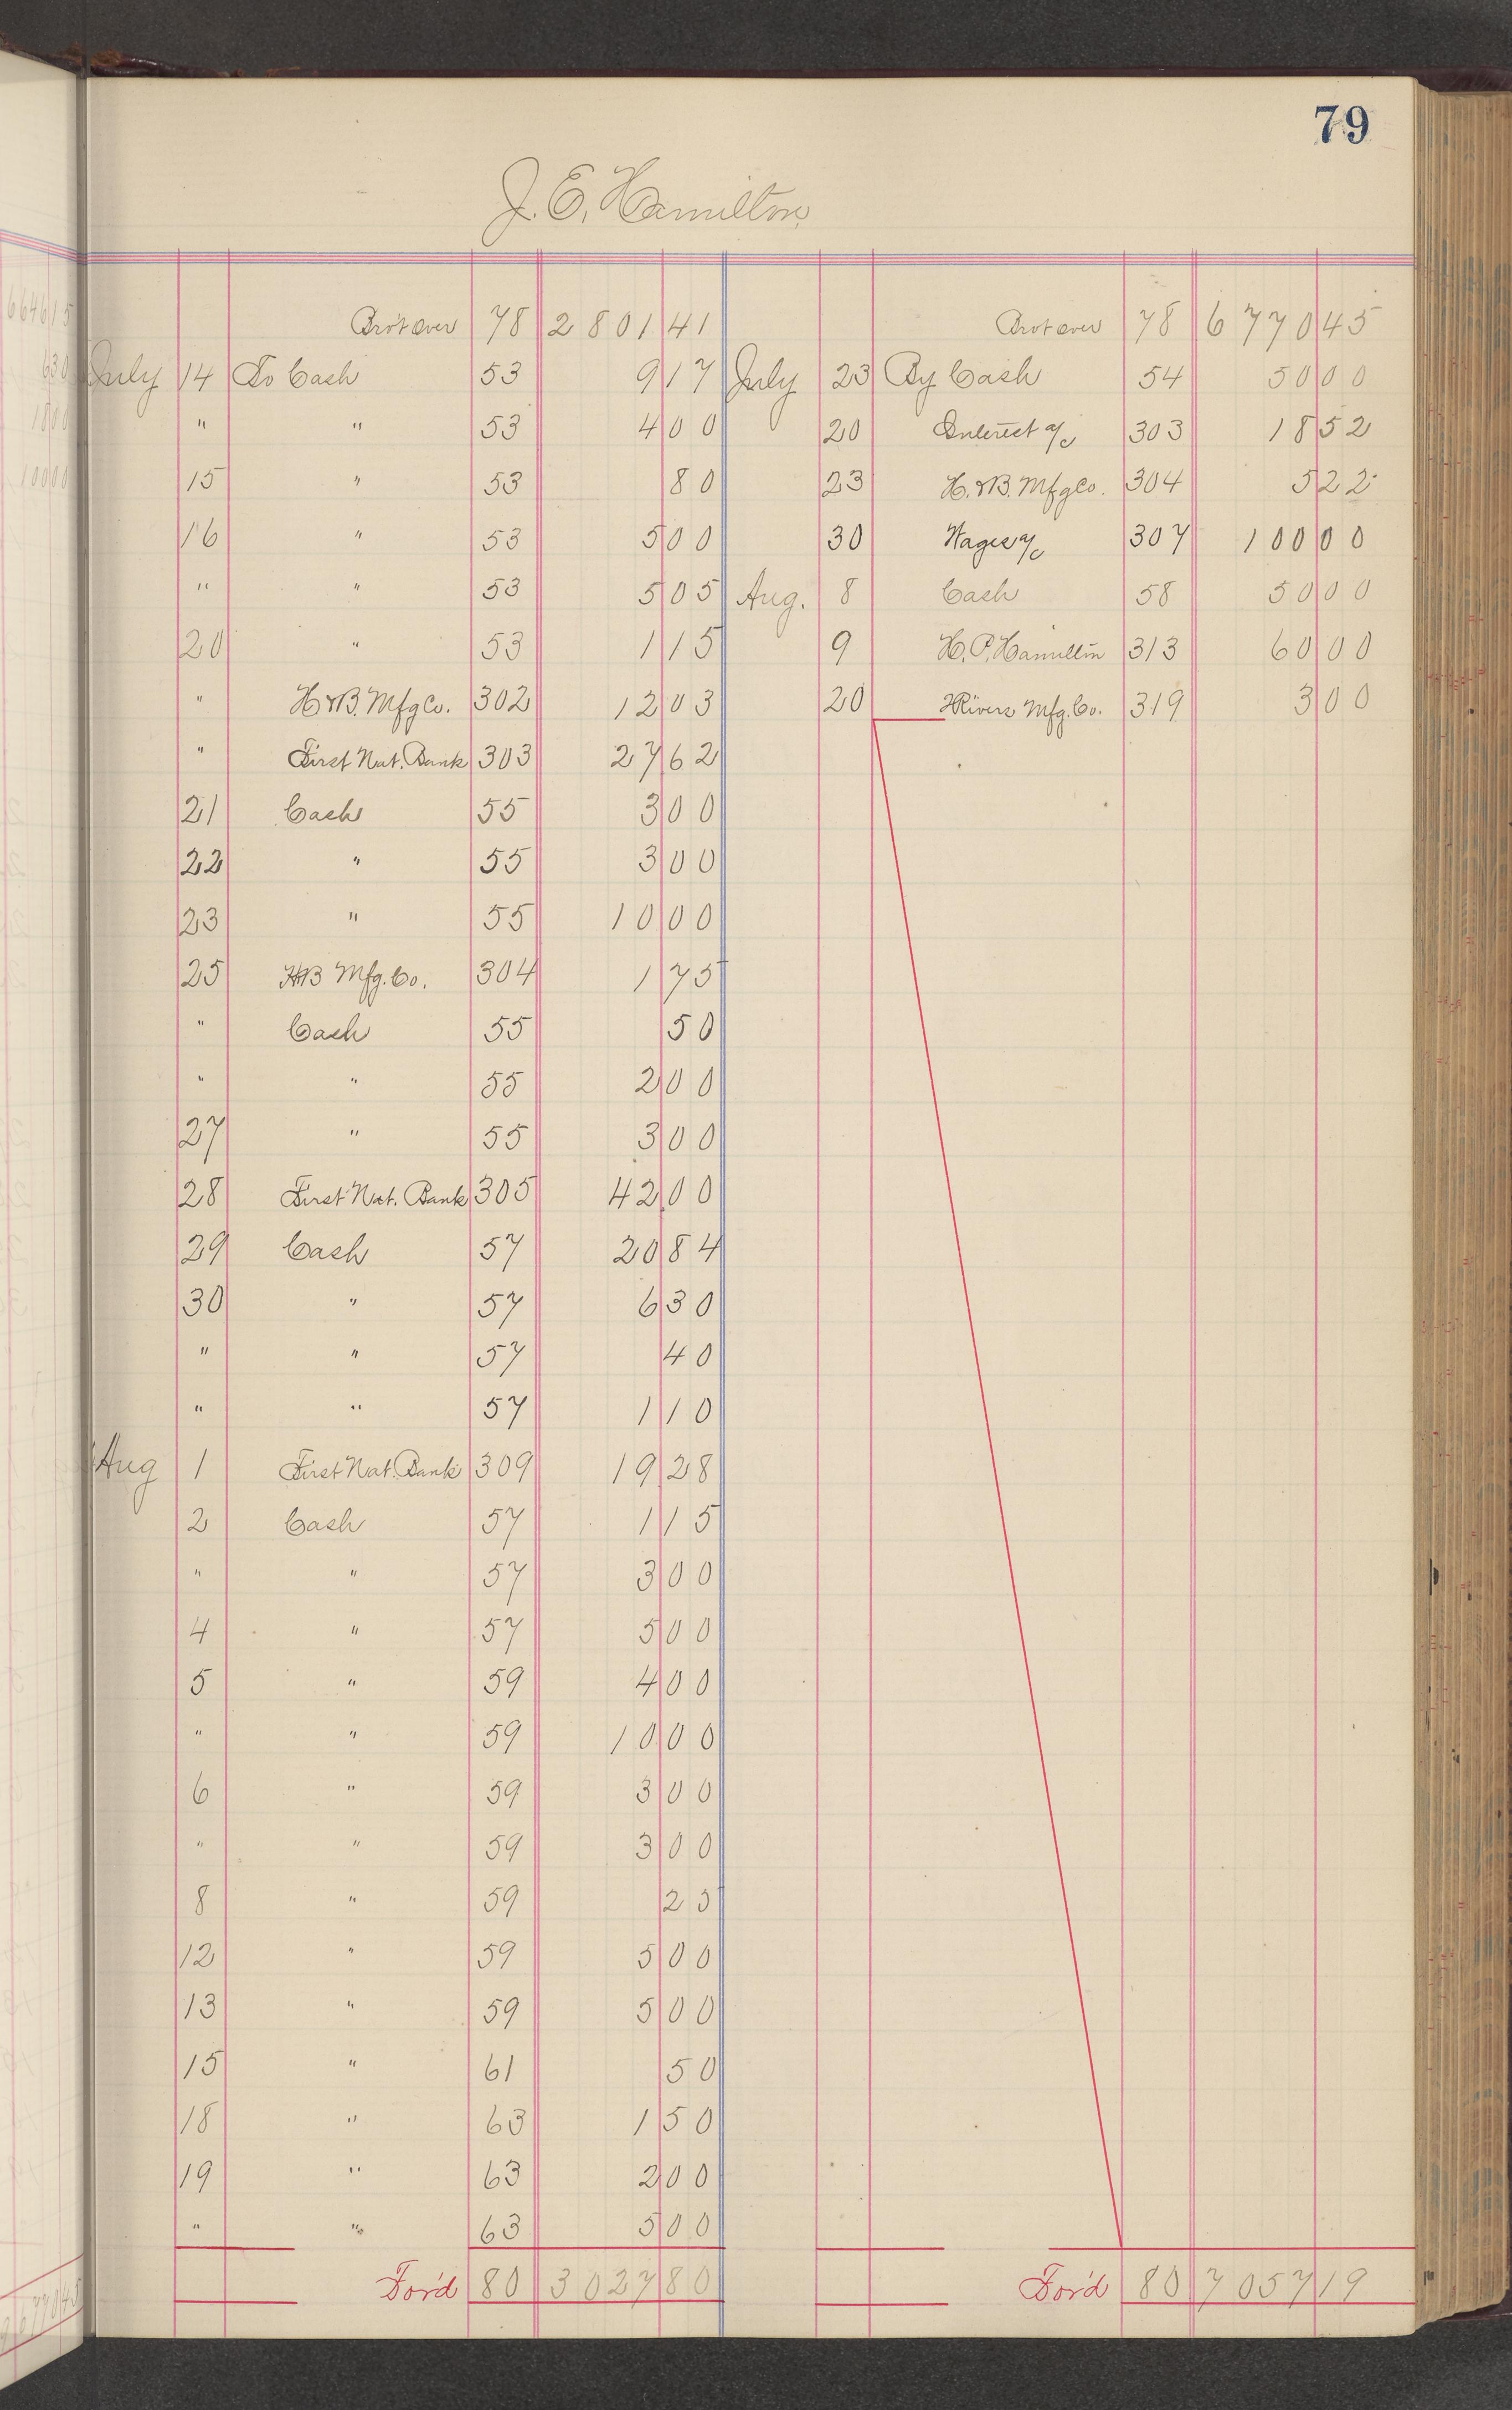 79
J. E. Hamilton
Bro't over 78 2801 41
July 14 To Cash 53 9 17
" " 53 4 00
15 " 53 80
16 " 53 5 00
" " 53 5 05
20 " 53 1 15
" H & B. Mfg Co. 302 12 03
" First Nat. Bank 303 27 62
21 Cash 55 3 00
22 " 55 3 00
23 " 55 10 00
25 H&B Mfg. Co. 304 1 75
" Cash 55 50
" " 55 2 00
27 " 55 3 00
28 First Nat. Bank 305 42 00
29 Cash 57 20 84
30 " 57 6 30
" " 57 40
" " 57 1 10
Aug 1 First Nat. Bank 309 19 28
2 Cash 57 1 15
" " 57 3 00
4 " 57 5 00
5 " 59 4 00
" " 59 10 00
6 " 59 3 00
" " 59 3 00
8 " 59 25
12 " 59 5 00
13 " 59 5 00
15 " 61 50
18 " 63 1 50
19 " 63 2 00
" " 63 5 00
For'd 80 3027 80
Brot over 78 6770 45
July 23 By Cash 54 50 00
20 Interest a/c 303 18 52
23 H. & B. Mfg Co. 304 5 22
30 Wages a/c 307 100 00
Aug. 8 Cash 58 50 00
9 H. P. Hamilton 313 60 00
20 2Rivers Mfg. Co. 319 3 00
For'd 80 7057 19
664615
630
1800
10000